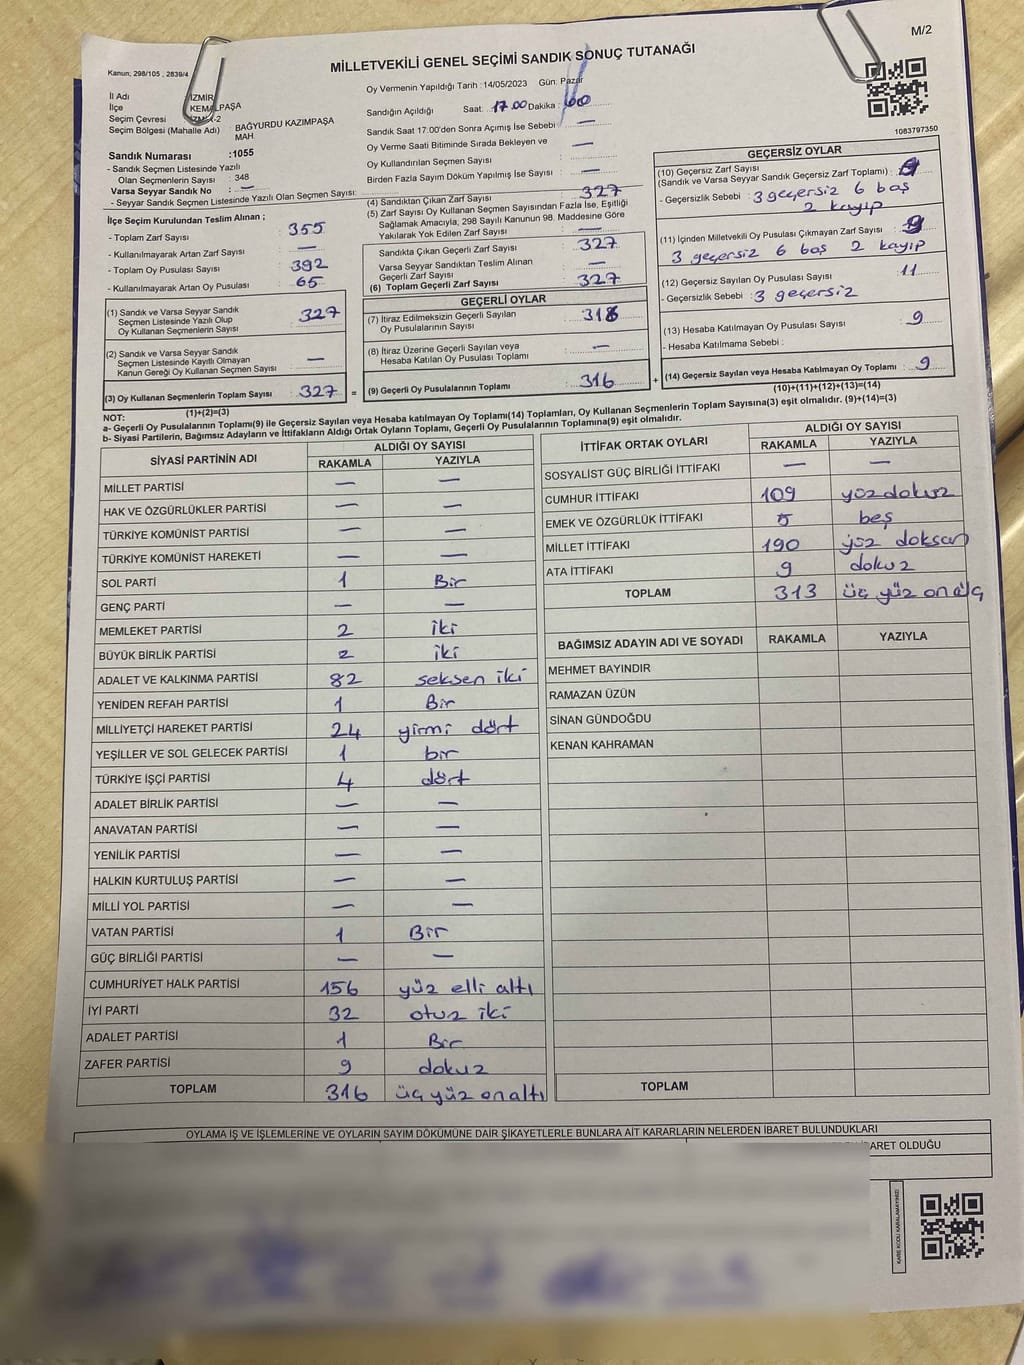 M/2
MİLLETVEKİLİ GENEL SEÇİMİ SANDIK SONUÇ TUTANAĞI
Kanun; 298/105 , 2839/4
Oy Vermenin Yapıldığı Tarih :14/05/2023 Gün: Pazar
İl Adı İZMİR
İlçe KEMALPAŞA
Seçim Çevresi İZMİR-2
Seçim Bölgesi (Mahalle Adı) : BAĞYURDU KAZIMPAŞA MAH.
Sandık Numarası :1055
- Sandık Seçmen Listesinde Yazılı
Olan Seçmenlerin Sayısı : 348
Varsa Seyyar Sandık No : —
- Seyyar Sandık Seçmen Listesinde Yazılı Olan Seçmen Sayısı:
Sandığın Açıldığı Saat: 17.00 Dakika : 00
Sandık Saat 17.00'den Sonra Açılmış İse Sebebi : —
Oy Verme Saati Bitiminde Sırada Bekleyen ve
Oy Kullandırılan Seçmen Sayısı : —
Birden Fazla Sayım Döküm Yapılmış İse Sayısı : —
1083797350
İlçe Seçim Kurulundan Teslim Alınan ;
- Toplam Zarf Sayısı : 355
- Kullanılmayarak Artan Zarf Sayısı : —
- Toplam Oy Pusulası Sayısı : 392
- Kullanılmayarak Artan Oy Pusulası : 65
(1) Sandık ve Varsa Seyyar Sandık
Seçmen Listesinde Yazılı Olup
Oy Kullanan Seçmenlerin Sayısı : 327
(2) Sandık ve Varsa Seyyar Sandık
Seçmen Listesinde Kayıtlı Olmayan
Kanun Gereği Oy Kullanan Seçmen Sayısı : —
(3) Oy Kullanan Seçmenlerin Toplam Sayısı : 327
(1)+(2)=(3)
(4) Sandıktan Çıkan Zarf Sayısı : 327
(5) Zarf Sayısı Oy Kullanan Seçmen Sayısından Fazla İse, Eşitliği
Sağlamak Amacıyla; 298 Sayılı Kanunun 98. Maddesine Göre
Yakılarak Yok Edilen Zarf Sayısı : —
Sandıkta Çıkan Geçerli Zarf Sayısı : 327
Varsa Seyyar Sandıktan Teslim Alınan
Geçerli Zarf Sayısı : —
(6) Toplam Geçerli Zarf Sayısı : 327
GEÇERLİ OYLAR
(7) İtiraz Edilmeksizin Geçerli Sayılan
Oy Pusulalarının Sayısı : 316
(8) İtiraz Üzerine Geçerli Sayılan veya
Hesaba Katılan Oy Pusulası Toplamı : —
= (9) Geçerli Oy Pusulalarının Toplamı : 316 +
GEÇERSİZ OYLAR
(10) Geçersiz Zarf Sayısı
(Sandık ve Varsa Seyyar Sandık Geçersiz Zarf Toplamı) :
- Geçersizlik Sebebi : 3 geçersiz 6 boş
2 kayıp
(11) İçinden Milletvekili Oy Pusulası Çıkmayan Zarf Sayısı :
3 geçersiz 6 boş 2 kayıp
(12) Geçersiz Sayılan Oy Pusulası Sayısı : 11
- Geçersizlik Sebebi : 3 geçersiz
(13) Hesaba Katılmayan Oy Pusulası Sayısı : 9
- Hesaba Katılmama Sebebi :
(14) Geçersiz Sayılan veya Hesaba Katılmayan Oy Toplamı : 9
(10)+(11)+(12)+(13)=(14)
NOT:
a- Geçerli Oy Pusulalarının Toplamı(9) ile Geçersiz Sayılan veya Hesaba katılmayan Oy Toplamı(14) Toplamları, Oy Kullanan Seçmenlerin Toplam Sayısına(3) eşit olmalıdır. (9)+(14)=(3)
b- Siyasi Partilerin, Bağımsız Adayların ve İttifakların Aldığı Ortak Oyların Toplamı, Geçerli Oy Pusulalarının Toplamına(9) eşit olmalıdır.
SİYASİ PARTİNİN ADI ALDIĞI OY SAYISI
RAKAMLA YAZIYLA
MİLLET PARTİSİ — —
HAK VE ÖZGÜRLÜKLER PARTİSİ — —
TÜRKİYE KOMÜNİST PARTİSİ — —
TÜRKİYE KOMÜNİST HAREKETİ — —
SOL PARTİ 1 Bir
GENÇ PARTİ — —
MEMLEKET PARTİSİ 2 iki
BÜYÜK BİRLİK PARTİSİ 2 iki
ADALET VE KALKINMA PARTİSİ 82 seksen iki
YENİDEN REFAH PARTİSİ 1 Bir
MİLLİYETÇİ HAREKET PARTİSİ 24 yirmi dört
YEŞİLLER VE SOL GELECEK PARTİSİ 1 bir
TÜRKİYE İŞÇİ PARTİSİ 4 dört
ADALET BİRLİK PARTİSİ — —
ANAVATAN PARTİSİ — —
YENİLİK PARTİSİ — —
HALKIN KURTULUŞ PARTİSİ — —
MİLLİ YOL PARTİSİ — —
VATAN PARTİSİ 1 Bir
GÜÇ BİRLİĞİ PARTİSİ — —
CUMHURİYET HALK PARTİSİ 156 yüz elli altı
İYİ PARTİ 32 otuz iki
ADALET PARTİSİ 1 Bir
ZAFER PARTİSİ 9 dokuz
TOPLAM 316 üç yüz onaltı
İTTİFAK ORTAK OYLARI ALDIĞI OY SAYISI
RAKAMLA YAZIYLA
SOSYALİST GÜÇ BİRLİĞİ İTTİFAKI — —
CUMHUR İTTİFAKI 109 yüz dokuz
EMEK VE ÖZGÜRLÜK İTTİFAKI 5 beş
MİLLET İTTİFAKI 190 yüz doksan
ATA İTTİFAKI 9 dokuz
TOPLAM 313 üç yüz on üç
BAĞIMSIZ ADAYIN ADI VE SOYADI RAKAMLA YAZIYLA
MEHMET BAYINDIR
RAMAZAN ÜZÜN
SİNAN GÜNDOĞDU
KENAN KAHRAMAN
TOPLAM
OYLAMA İŞ VE İŞLEMLERİNE VE OYLARIN SAYIM DÖKÜMÜNE DAİR ŞİKAYETLERLE BUNLARA AİT KARARLARIN NELERDEN İBARET BULUNDUKLARI
ARET OLDUĞU
KARE KODU KARALAMAYINIZ!